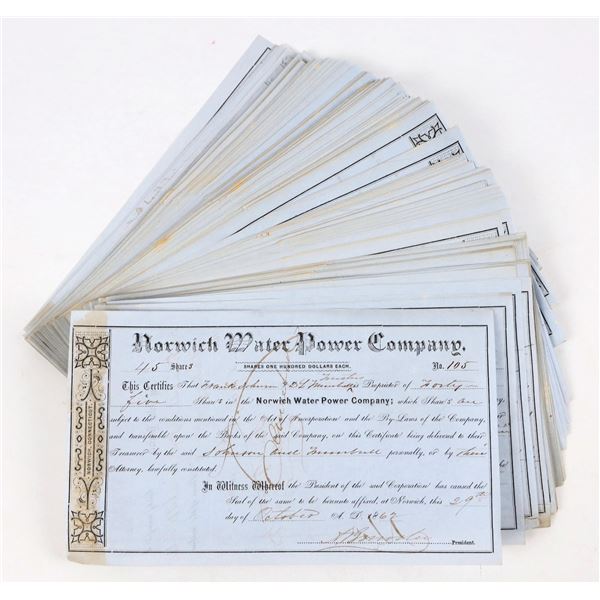 Norwich Water Power Company.
45 Shares
SHARES ONE HUNDRED DOLLARS EACH.
No. 105
Trustees
This Certifies That Frank Johnson & Proprietor of Forty-
five Shares in the Norwich Water Power Company; which Shares are
subject to the conditions mentioned in the Act of Incorporation and the By-Laws of the Company,
and transferable upon the Books of the said Company, on this Certificate being delivered to their
Treasurer by the said Johnson and Trumbull personally, or by their
Attorney, lawfully constituted.
In Witness Whereof the President of the said Corporation has caused the
Seal of the same to be hereunto affixed, at Norwich, this 29th
day of October A. D. 1867
President.
NORWICH, CONNECTICUT.